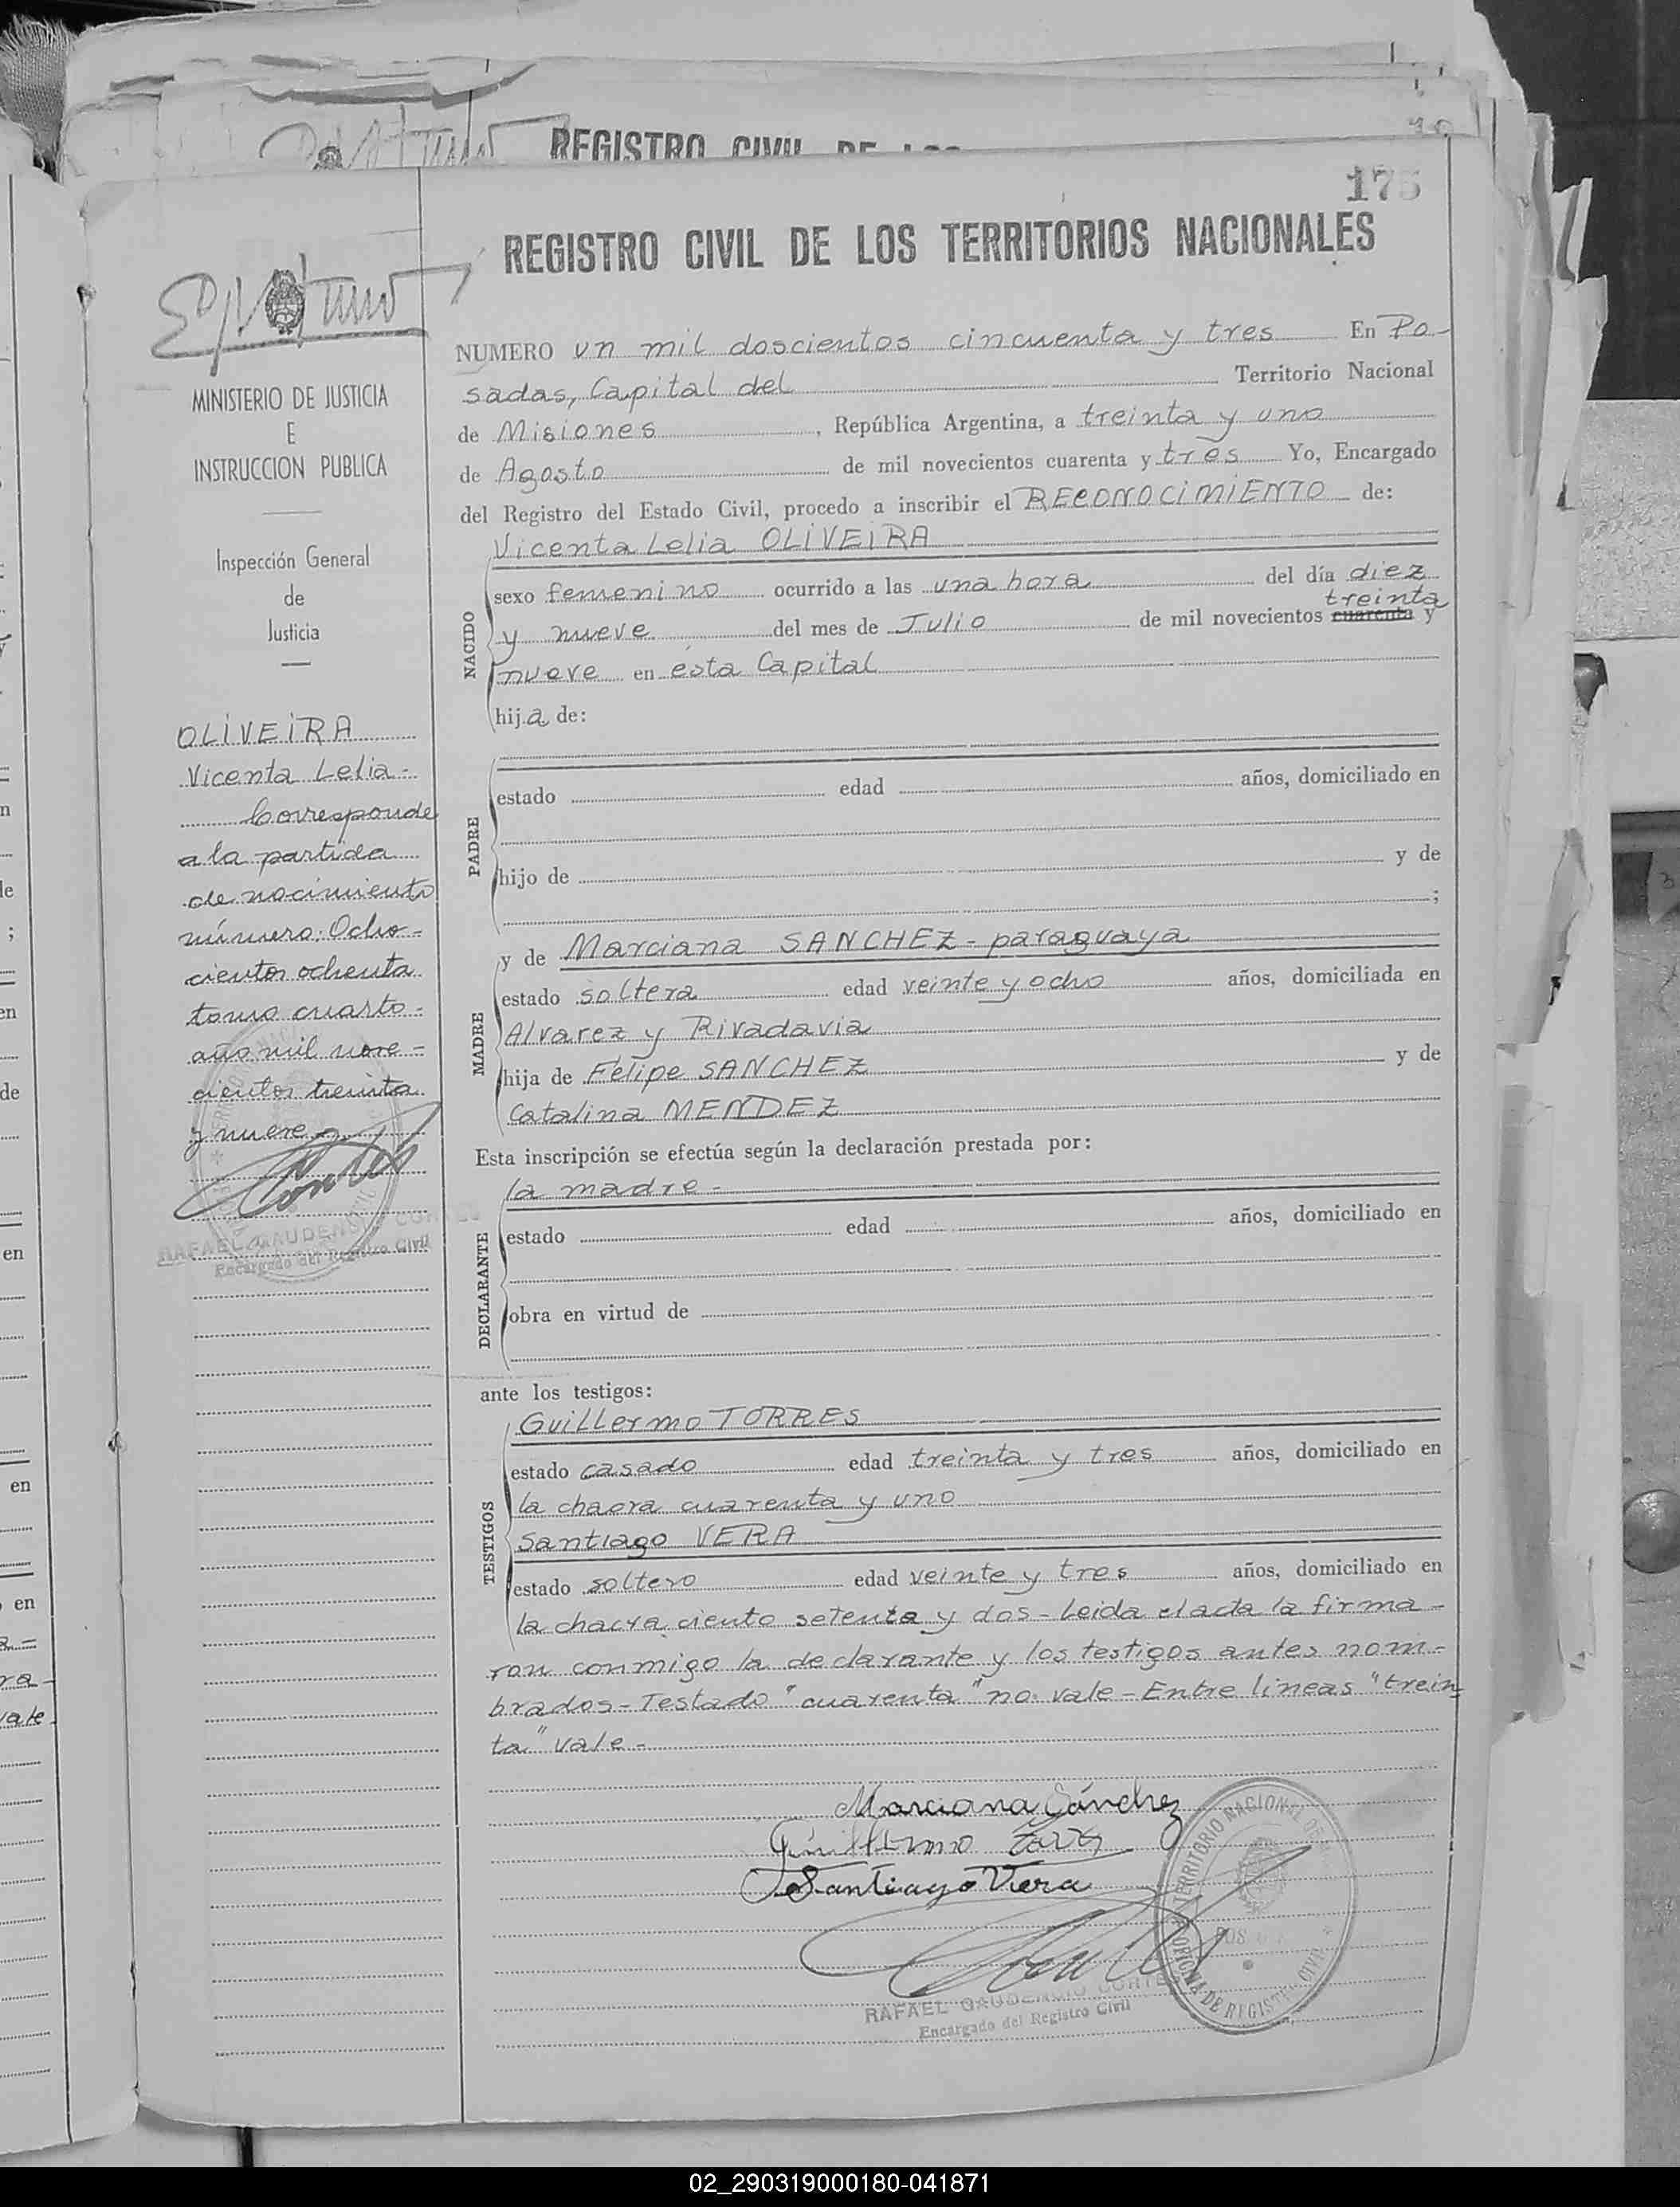 REGISTRO CIVIL DE LOS
175
REGISTRO CIVIL DE LOS TERRITORIOS NACIONALES
MINISTERIO DE JUSTICIA
E
INSTRUCCION PUBLICA
Inspección General
de
Justicia
OLIVEIRA
Vicenta Lelia-
Corresponde
a la partida
de nacimiento
número: Ocho-
cientos ochenta
tomo cuarto-
año mil nove-
cientos treinta
y nueve
RAFAEL GAUDENSIO CORTES
Encargado del Registro Civil
NUMERO un mil doscientos cincuenta y tres En Po-
sadas, Capital del Territorio Nacional
de Misiones, República Argentina, a treinta y uno
de Agosto de mil novecientos cuarenta y tres Yo, Encargado
del Registro del Estado Civil, procedo a inscribir el RECONOCIMIENTO de:
NACIDO
Vicenta Lelia OLIVEIRA
sexo femenino ocurrido a las una hora del día diez
treinta
y nueve del mes de Julio de mil novecientos cuarenta y
nueve en ésta Capital
hija de:
PADRE
estado edad años, domiciliado en
hijo de y de
;
MADRE
y de Marciana SANCHEZ-paraguaya
estado soltera edad veinte y ocho años, domiciliada en
Alvarez y Rivadavia
hija de Felipe SANCHEZ y de
Catalina MENDEZ
Esta inscripción se efectúa según la declaración prestada por:
DECLARANTE
la madre-
estado edad años, domiciliado en
obra en virtud de
ante los testigos:
TESTIGOS
Guillermo TORRES
estado casado edad treinta y tres años, domiciliado en
la chacra cuarenta y uno
Santiago VERA
estado soltero edad veinte y tres años, domiciliado en
la chacra ciento setenta y dos-Leida el acta la firma-
ron conmigo la declarante y los testigos antes nom-
brados-Testado "cuarenta" no vale-Entre lineas "trein
ta" vale-
Marciana Sánchez
Guillermo
Santiago Vera
TERRITORIO NACIONAL
OFICINA DE REGISTRO CIVIL
RAFAEL GAUDENSIO CORTES
Encargado del Registro Civil
02_290319000180-041871